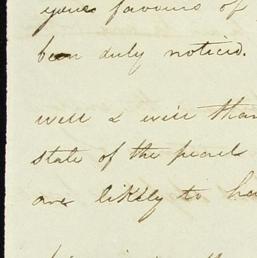 your favours of
been duly noticed.
well & will than
state of the pearl
are likely to ha